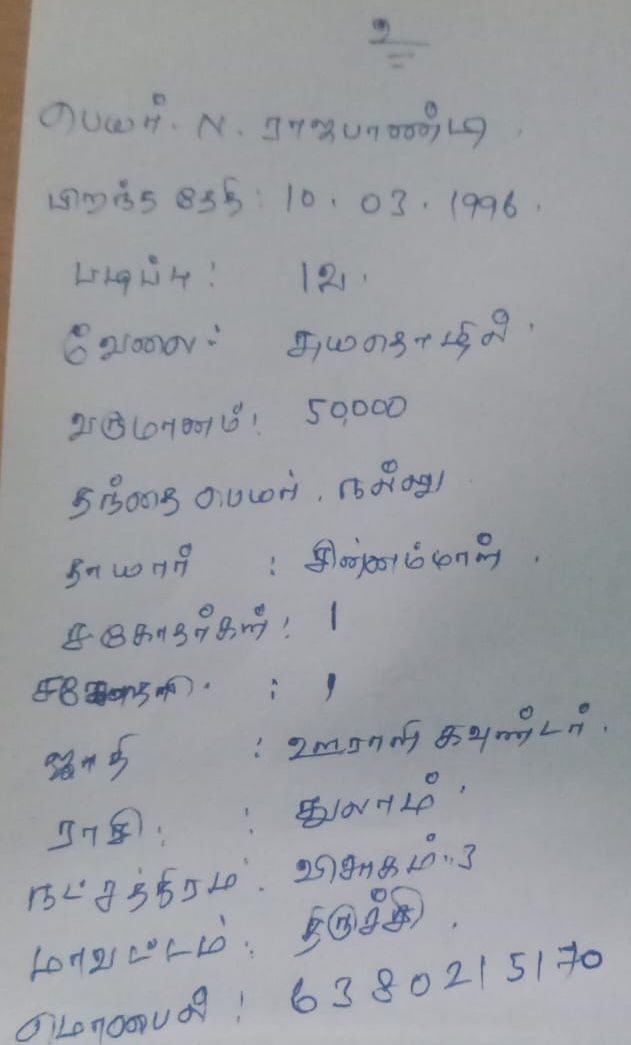 உ
பெயர். N. ராஜபாண்டி.
பிறந்த தேதி: 10. 03. 1996.
படிப்பு: 12.
வேலை: சுயதொழில்.
வருமானம்: 50,000
தந்தை பெயர். நல்லு
தாயார் : சின்னம்மாள்.
சகோதரர்கள்: 1
சகோதரி. : 1
ஜாதி : ஊராளி கவுண்டர்.
ராசி: : துலாம்.
நட்சத்திரம். விசாகம்..3
மாவட்டம்: திருச்சி.
மொபைல்: 6380215170